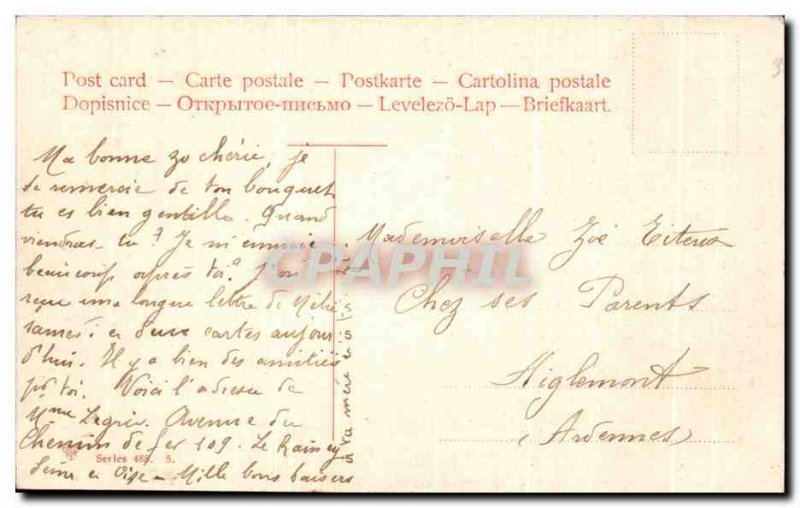 Post card – Carte postale – Postkarte – Cartolina postale
Dopisnice – Открытое-письмо – Levelezö-Lap – Briefkaart.
Ma bonne zo chérie, je
te remercie de ton bouquet
tu es bien gentille. Quand
viendras tu? Je m'ennuie
beaucoup après toi. J'ai
reçu une longue lettre de
samedi e deux cartes aujour
d'hui. Il y a bien des amitiés
pr toi. Voici l'adresse de
Mme Legris. Avenue du
Chemin de fer 109. Le Raincy
Seine et Oise – Mille bons baisers
ta mère
Mademoiselle Zoé
Chez ses Parents
Aiglemont
Ardennes
CPAPHIL
Series 488. 5.
3